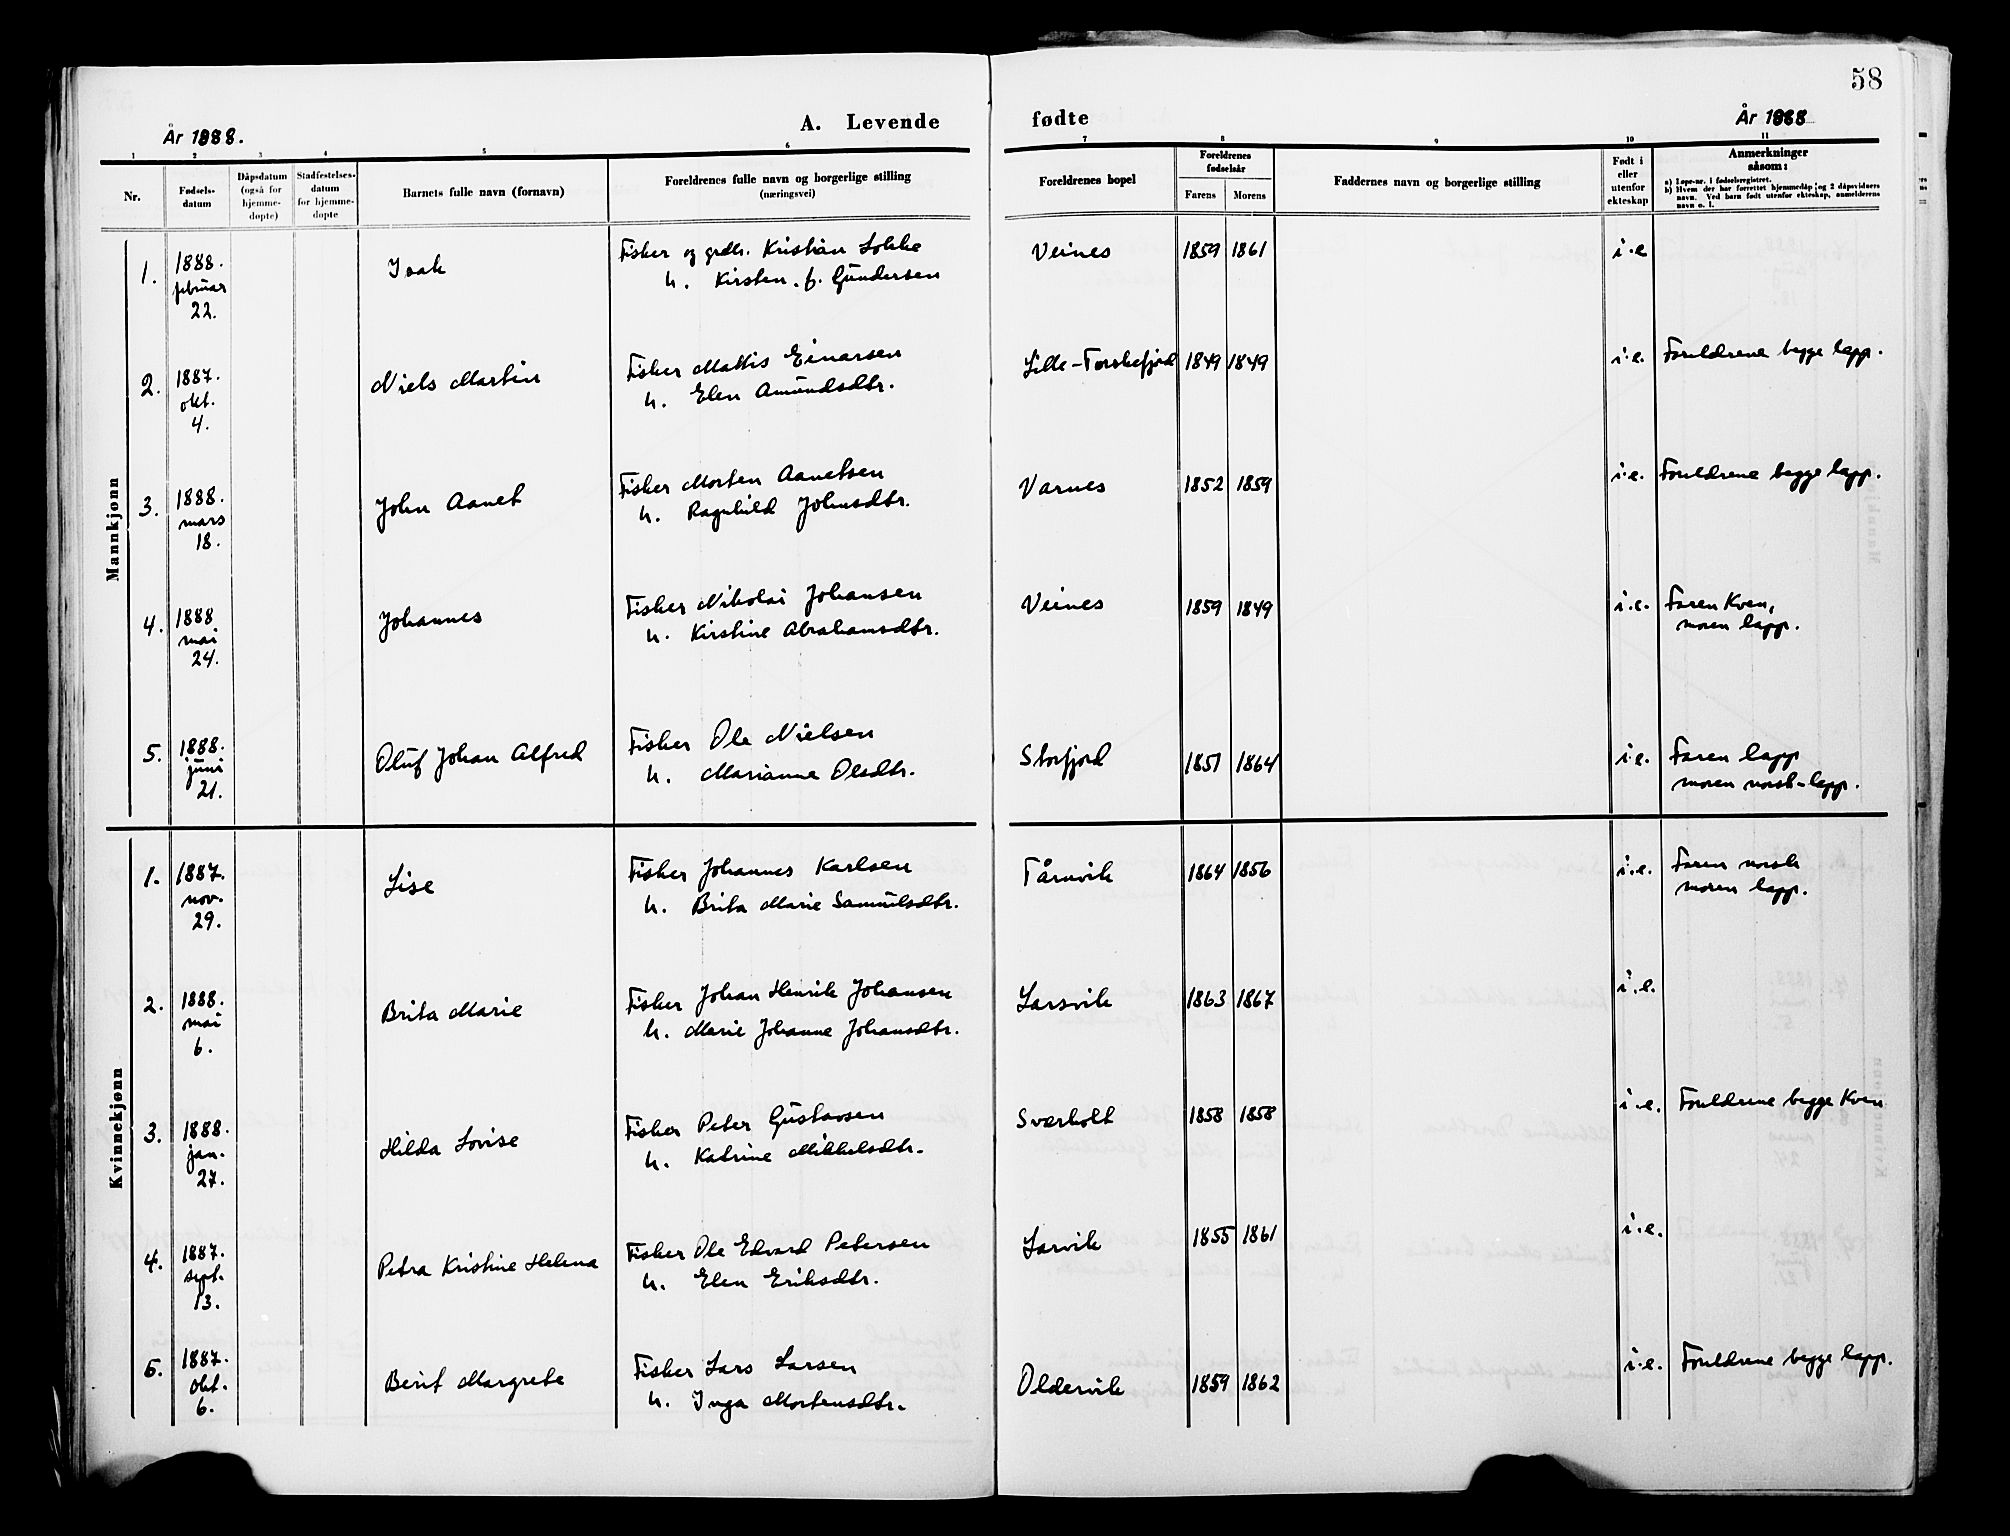 58
År 1888.
A. Levende
fødte
År 1888
1 2 3 4 5 6 7 8 9 10 11
Nr.
Fødsels-
datum
Dåpsdatum
(også for
hjemme-
døpte)
Stadfestelses-
datum
for hjemme-
døpte
Barnets fulle navn (fornavn)
Foreldrenes fulle navn og borgerlige stilling
(næringsvei)
Foreldrenes bopel
Foreldrenes
fødselsår
Farens Morens
Faddernes navn og borgerlige stilling
Født i
eller
utenfor
ekteskap
Anmerkninger
såsom:
a) Løpe-nr. i fødselsregistret.
b) Hvem der har forrettet hjemmedåp og 2 dåpsvidners
navn. Ved barn født utenfor ekteskap, anmelderens
navn o. l.
Mannkjønn
1. 1888. februar 22. Isak
Fisker og grdbr. Kristian Lokke
h. Kirsten f. Gundersen
Veines 1859 1861 i.e
2. 1887. okt. 4. Niels Martin
Fisker Mathis Einarsen
h. Elen Amundsdtr.
Lille-Torskefjord 1849 1849 i.e. Foreldrene begge lapp.
3. 1888. mars 18. John Aanet
Fisker Morten Aanetsen
h. Ragnhild Johnsdtr.
Varnes 1852 1859 i.e. Foreldrene begge lapp.
4. 1888 mai 24. Johannes
Fisker Nikolai Johansen
h. Kirstine Abrahamsdtr.
Veines 1859 1849 i.e. Faren Kven,
moren lapp.
5. 1888. juni 21. Oluf Johan Alfred
Fisker Ole Nielsen
h. Marianne Olsdtr.
Storfjord 1851 1864 i.e. Faren lapp
moren norsk-lapp.
Kvinnekjønn
1. 1887. nov. 29. Lise
Fisker Johannes Karlsen
h. Brita Marie Samuelsdtr.
Tårnvik 1864 1856 i.e. Faren norsk
moren lapp.
2. 1888. mai 6. Brita Marie
Fisker Johan Henrik Johansen
h. Marie Johanne Johansdtr.
Larsvik 1863 1867 i.e.
3. 1888. jan. 27. Hilda Lovise
Fisker Peter Gustavsen
h. Katrine Mikkelsdtr.
Sværholt 1858 1858 i.e. Foreldrene begge Kven
4. 1887. sept. 13. Petra Kristine Helena
Fisker Ole Edvard Petersen
h. Elen Eriksdtr.
Larvik 1855 1861 i.e.
5. 1887. okt. 6. Berit Margrete
Fisker Lars Larsen
h. Inga Mortensdtr.
Oldervik 1859 1862 i.e. Foreldrene begge lapp.